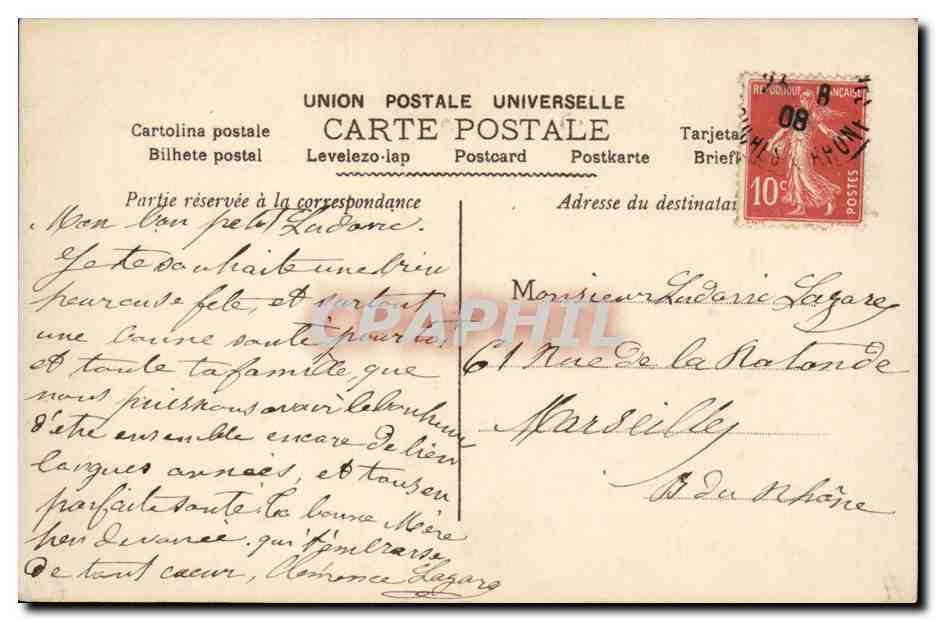 UNION POSTALE UNIVERSELLE
CARTE POSTALE
Cartolina postale
Tarjeta
Bilhete postal
Levelezo-lap
Postcard
Postkarte
Briefk
Partie réservée à la correspondance
Adresse du destinatai
REPUBLIQUE FRANÇAISE
10c
POSTES
8
08
CPAPHIL
Mon bon petit Ludovic.
Je te souhaite une bien
heureuse fete, et surtout
une bonne santé pour toi
et toute ta famille, que
nous puissions avoir le bonheur
d'être ensemble encore de bien
longues années, et tous en
parfaite santé. Ta bonne Mère
bien devouée qui t'embrasse
de tout coeur, Clémence Lazare
Monsieur Ludovic Lazare
61 Rue de la Rotonde
Marseille
B du Rhône